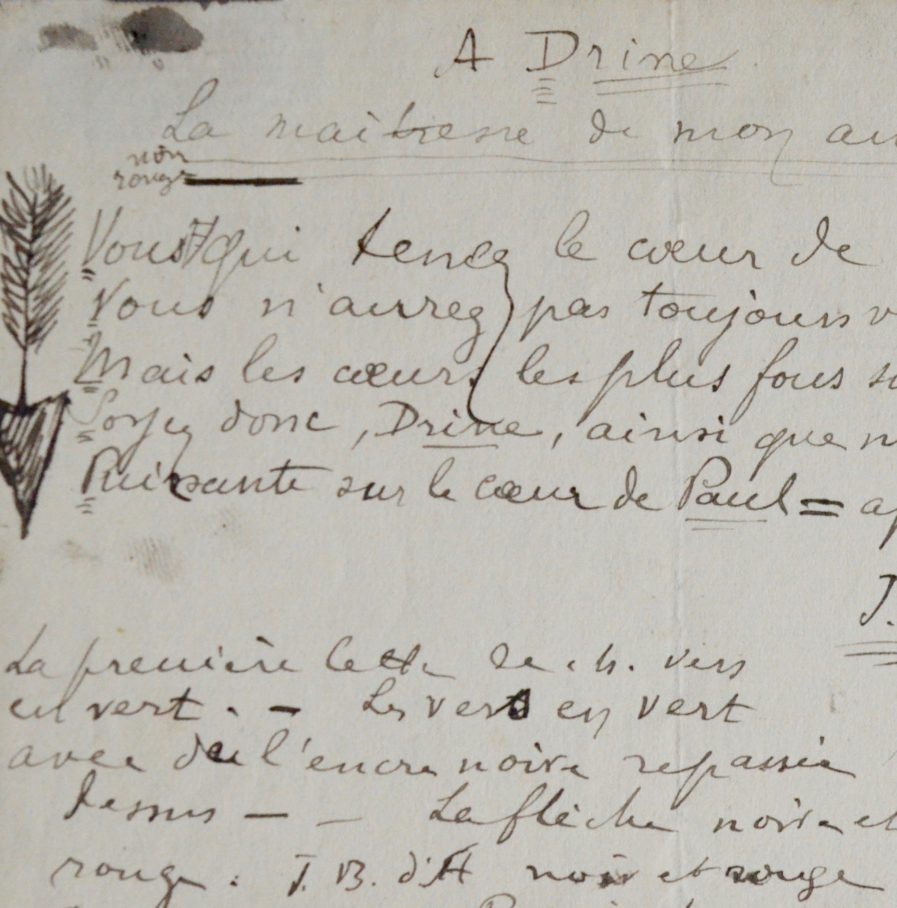 A Drine
La maîtresse de mon
noir
rouge
Vous qui tenez le cœur de
Vous n'aurrez pas toujours
Mais les cœurs les plus fous
Soyez donc, Drine, ainsi que
Puissante sur le cœur de Paul =
J.
La première lettre de ch. vers
en vert. - Les vers en vert
avec de l'encre noire repassée
dessus - - La flèche noire et
rouge. J. B. d'H noir et rouge